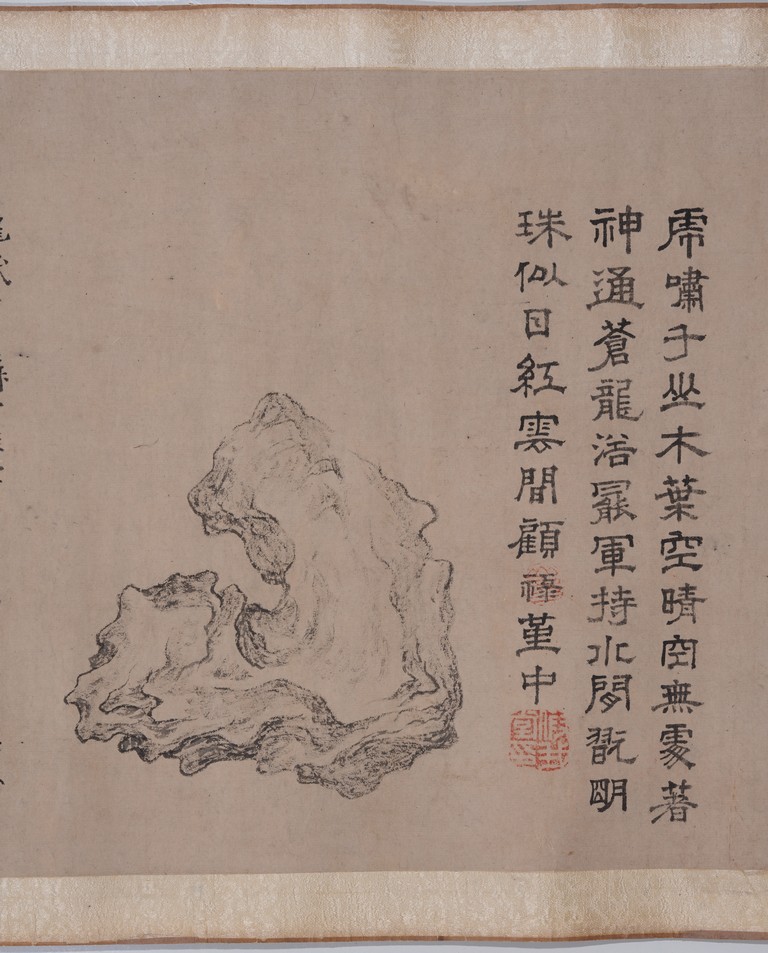 虎嘯于坐木葉空晴空無處著
神通蒼龍浴罷軍持水閒翫明
珠似日紅雲間顧祿堇中